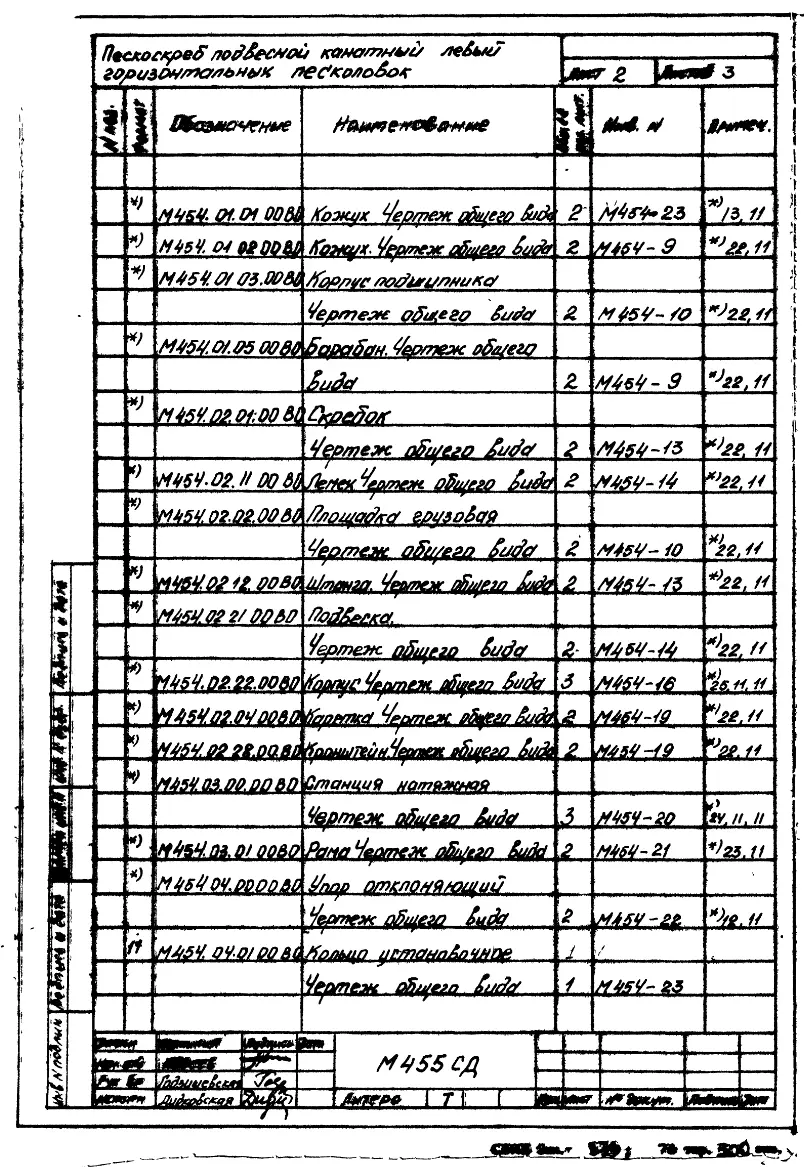 Пескоскреб подвесной канатный левый
горизонтальных песколовок
Лист 2 Листов 3
Формат Обозначение Наименование Инв. N Примеч.
*) М454.01.01 00 ВО Кожух Чертеж общего вида 2 М454-23 *)13,11
*) М454.01 02 00 ВО Кожух. Чертеж общего вида 2 М454-9 *)22,11
*) М454.01 03.00 ВО Корпус подшипника
Чертеж общего вида 2 М454-10 *)22,11
*) М454.01.05 00 ВО Барабан. Чертеж общего
вида 2 М454-9 *)22,11
*) М454.02.01.00 ВО Скребок
Чертеж общего вида 2 М454-13 *)22,11
*) М454.02.11 00 ВО Лемек Чертеж общего вида 2 М454-14 *)22,11
*) М454.02.02.00 ВО Площадка грузовая
Чертеж общего вида 2 М454-10 *)22,11
*) М454.02 12.00 ВО Штанга. Чертеж общего вида 2 М454-13 *)22,11
*) М454.02 21 00 ВО Подвеска.
Чертеж общего вида 2 М454-14 *)22,11
*) М454.02.22.00 ВО Корпус Чертеж общего вида 3 М454-16 *)25,11,11
*) М454.02.04 00 ВО Каретка Чертеж общего вида 2 М454-19 *)22,11
*) М454.02 28.00 ВО Кронштейн. Чертеж общего вида 2 М454-19 *)22,11
*) М454.03.00.00 ВО Станция натяжная
Чертеж общего вида 3 М454-20 *)24,11,11
*) М454.03.01 00 ВО Рама Чертеж общего вида 2 М454-21 *)23,11
*) М454 04.00 00 ВО Упор отклоняющий
Чертеж общего вида 2 М454-22 *)12,11
11 М454.04.01 00 ВО Кольцо установочное 1
Чертеж общего вида 1 М454-23
Подпись Дата
М455 СД
Рук бр Годзишевская
Дидковская
Литера Т
Лист № докум. Подпись Дат
Подпись и дата
Подпись и дата
Инв N подлин